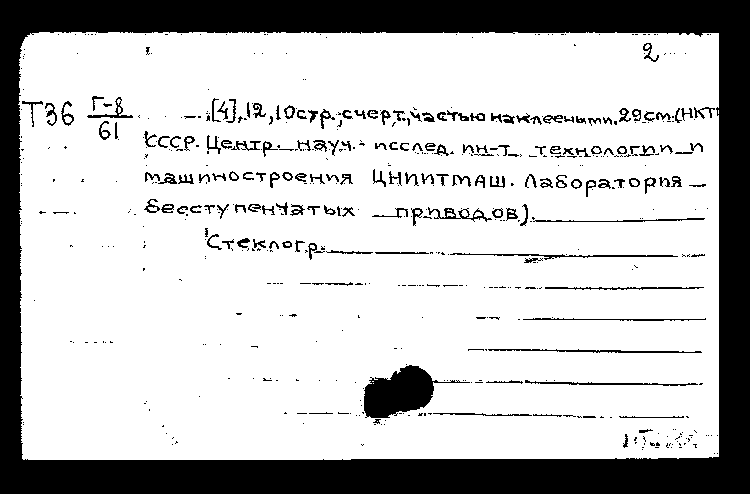 2
Т36 Г-8/61 [4], 12, 10стр., с черт., частью наклееными. 29см. (НКТП
СССР. Центр. науч.-исслед. ин-т технологии и
машиностроения ЦНИИТМАШ. Лаборатория
бесступенчатых приводов).
Стеклогр.